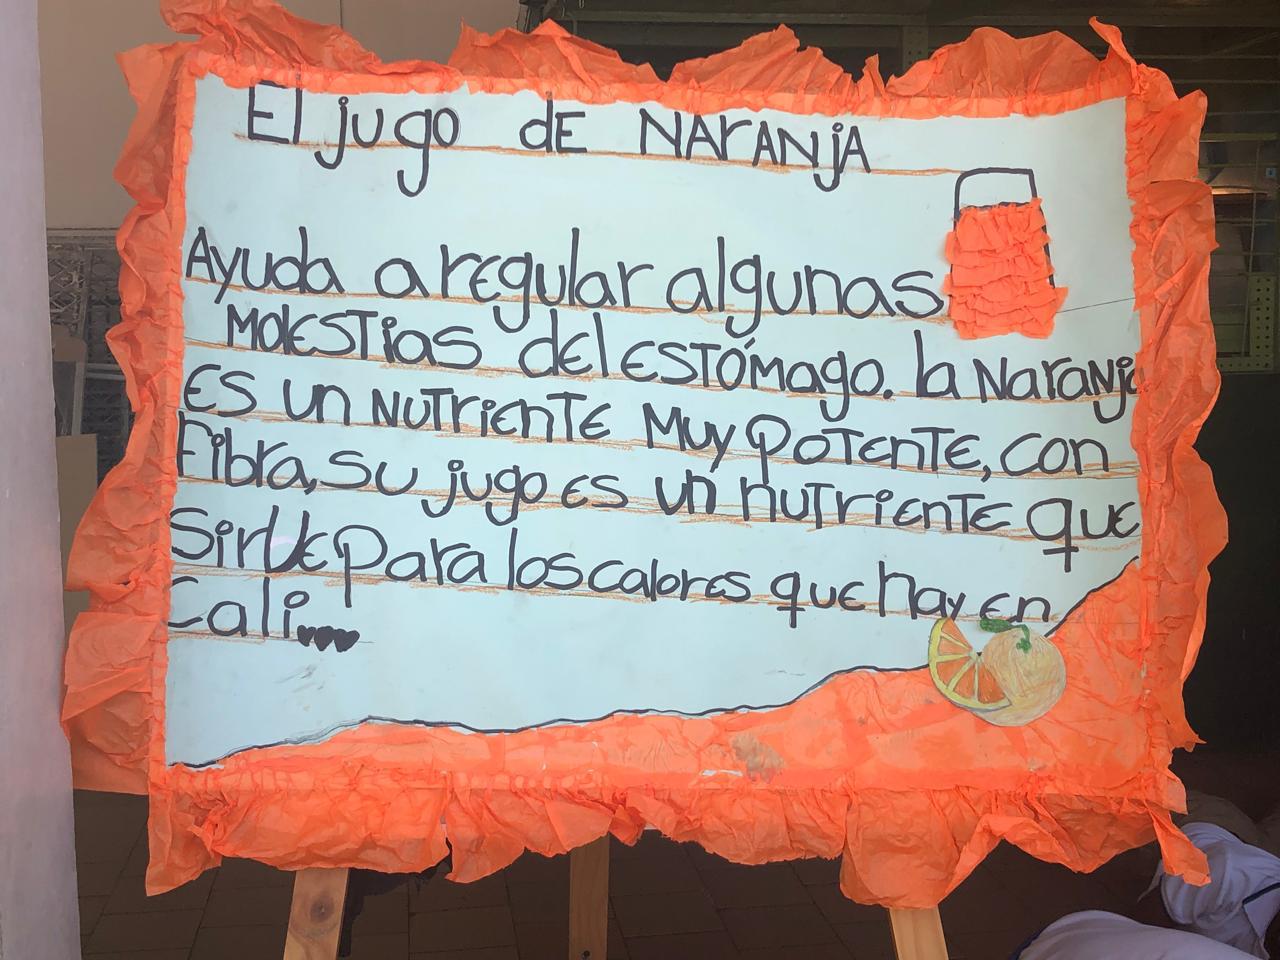 El jugo dE NArANjA
Ayuda a rEgular algunas
MOlESTias dEl ESTÓMago. la NaraNja
ES un NUTriENTE Muy POTENTE, con
Fibra, su jugo ES un nuTriENTE que
SirVE para los calorES quE hay En
Cali...